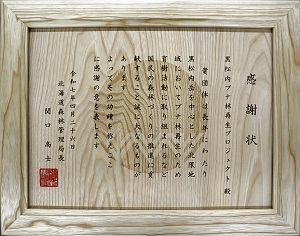 感謝状
黒松内ブナ林再生プロジェクト殿
貴団体は長年にわたり
黒松内岳を中心とした北限地
域においてブナ林再生のため
育樹活動に取り組まれるなど
国民の森林づくりの推進に貢
献すること誠に大なるものが
あります
よってその功績を称えここ
に感謝の意を表します
令和七年四月二十六日
北海道森林管理局長
関口高士